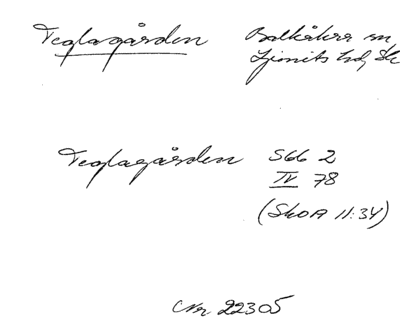 Teglagården Balkåkra sn
Ljunits hd, Sk
Teglagården SGG 2
IV 78
(SkOA 11:34)
Nr 22305